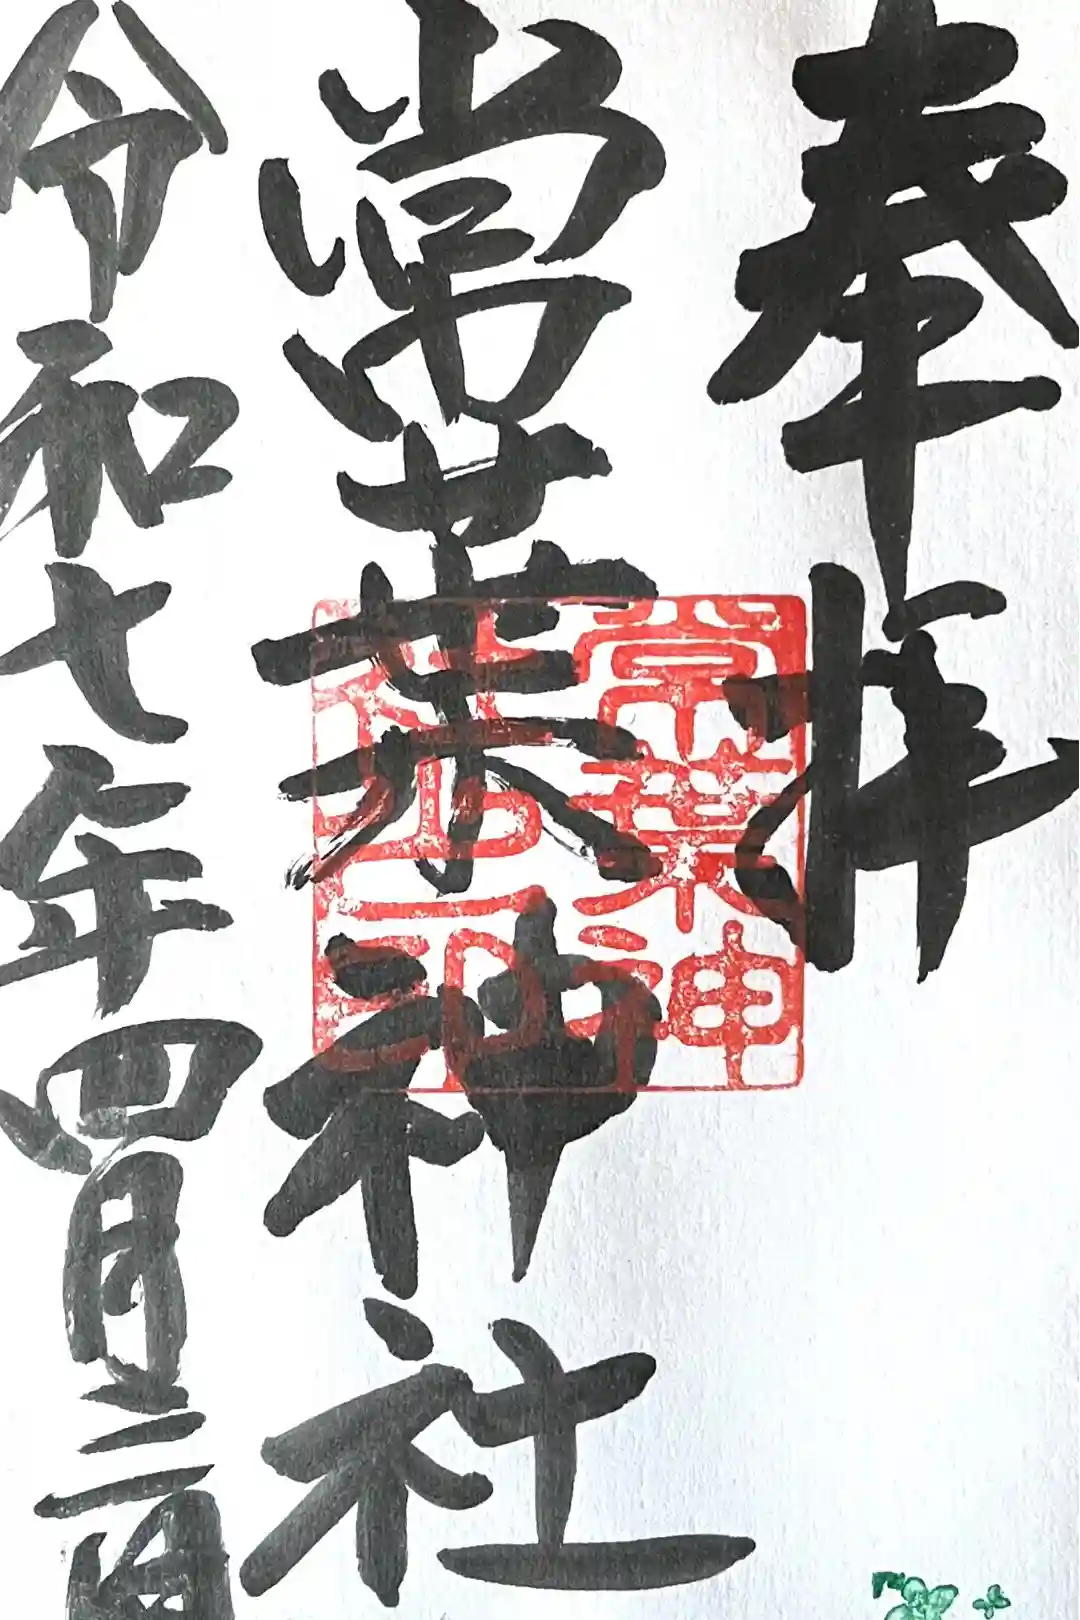 奉拝
常葉神社
常葉神
社
令和七年四月三日